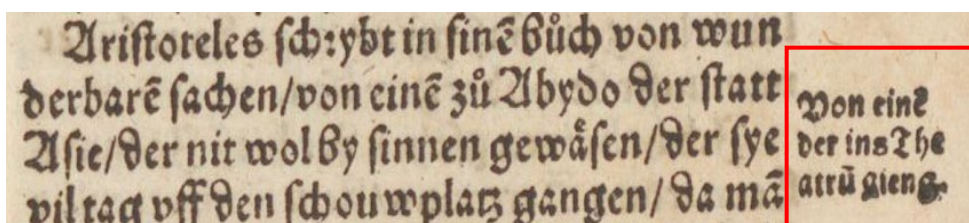 Ariſtoteles ſchꝛybt in ſinē bůch von wun
derbarē ſachen/von einē zů Abydo der ſtatt
Aſie/der nit wol by ſinnen gewåſen/der ſye
vil tag vff den ſchouwplatz gangen/da mā
Von einē
der ins The
atrū gieng.